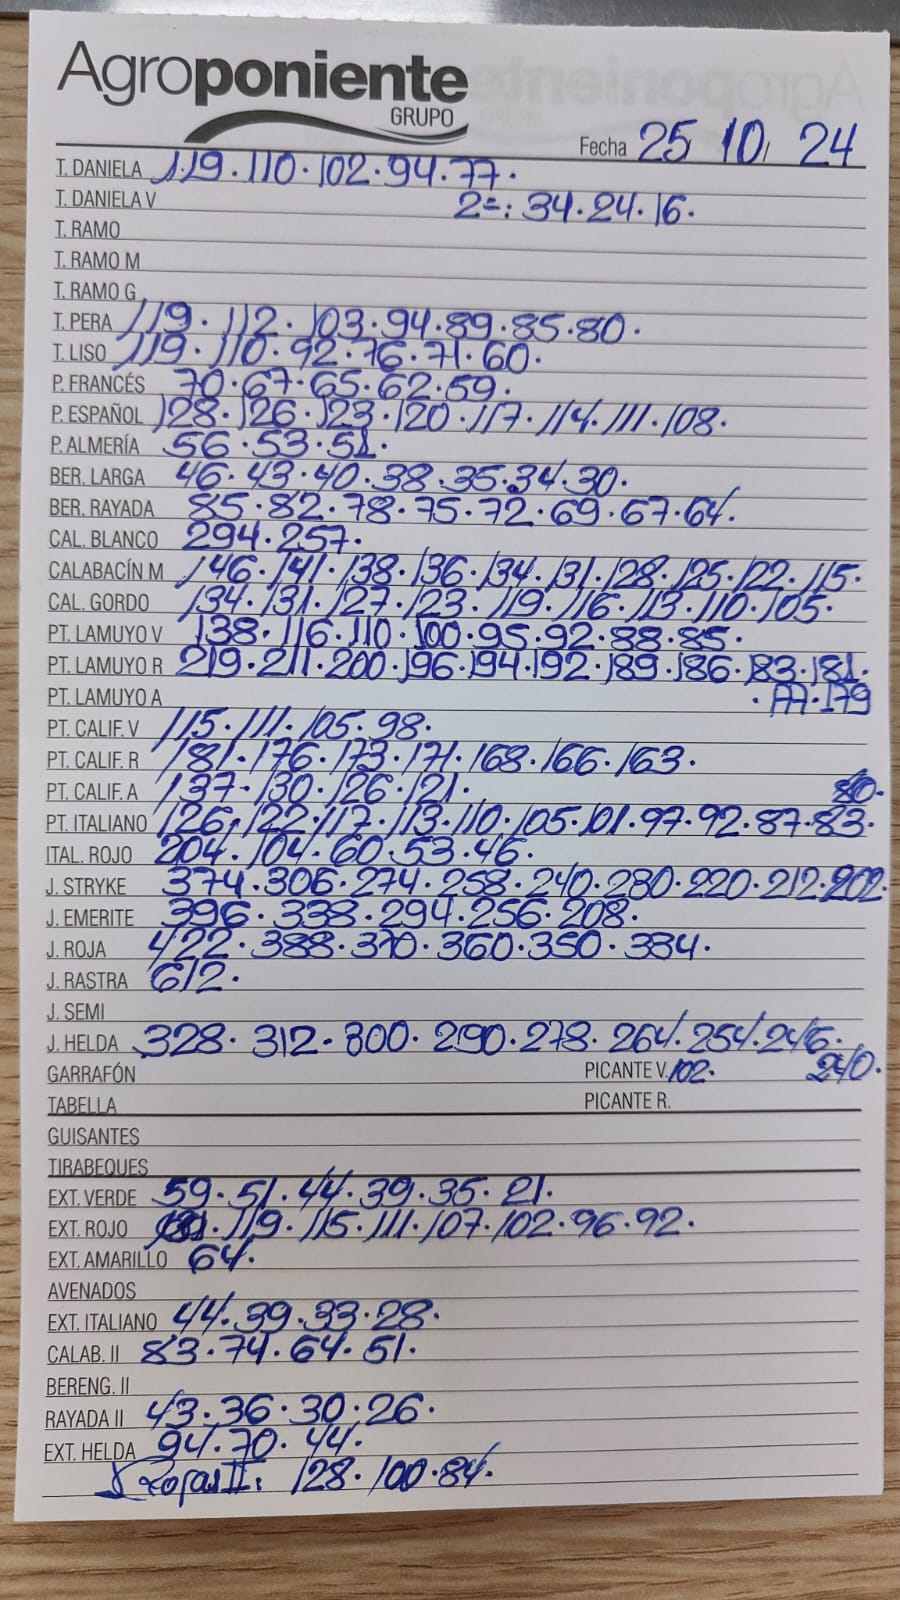 Agroponiente
GRUPO
Fecha 25 10 24
T. DANIELA 119.110.102.94.77.
T. DANIELA V 2=: 34.24.16.
T. RAMO
T. RAMO M
T. RAMO G
T. PERA 119.112.103.94.89.85.80.
T. LISO 119.110.92.76.71.60.
P. FRANCÉS 70.67.65.62.59.
P. ESPAÑOL 128.126.123.120.117.114.111.108.
P. ALMERÍA 56.53.51.
BER. LARGA 46.43.40.38.35.34.30.
BER. RAYADA 85.82.78.75.72.69.67.64.
CAL. BLANCO 294.257.
CALABACÍN M 146.141.138.136.134.131.128.125.122.115.
CAL. GORDO 134.131.127.123.119.116.113.110.105.
PT. LAMUYO V 138.116.110.100.95.92.88.85.
PT. LAMUYO R 219.211.200.196.194.192.189.186.183.181.
PT. LAMUYO A .179
PT. CALIF. V 115.111.105.98.
PT. CALIF. R 181.176.173.171.168.166.163.
PT. CALIF. A 137.130.126.121. 80.
PT. ITALIANO 126.122.117.113.110.105.101.97.92.87.83.
ITAL. ROJO 204.104.60.53.46.
J. STRYKE 374.306.274.258.240.280.220.212.202.
J. EMERITE 396.338.294.256.208.
J. ROJA 422.388.370.360.350.334.
J. RASTRA 612.
J. SEMI
J. HELDA 328.312.300.290.278.264.254.246.
GARRAFÓN PICANTE V. 102. 240.
TABELLA PICANTE R.
GUISANTES
TIRABEQUES
EXT. VERDE 59.51.44.39.35.21.
EXT. ROJO .119.115.111.107.102.96.92.
EXT. AMARILLO 64.
AVENADOS
EXT. ITALIANO 44.39.33.28.
CALAB. II 83.74.64.51.
BERENG. II
RAYADA II 43.36.30.26.
EXT. HELDA 94.70.44.
Rojas II: 128.100.84.